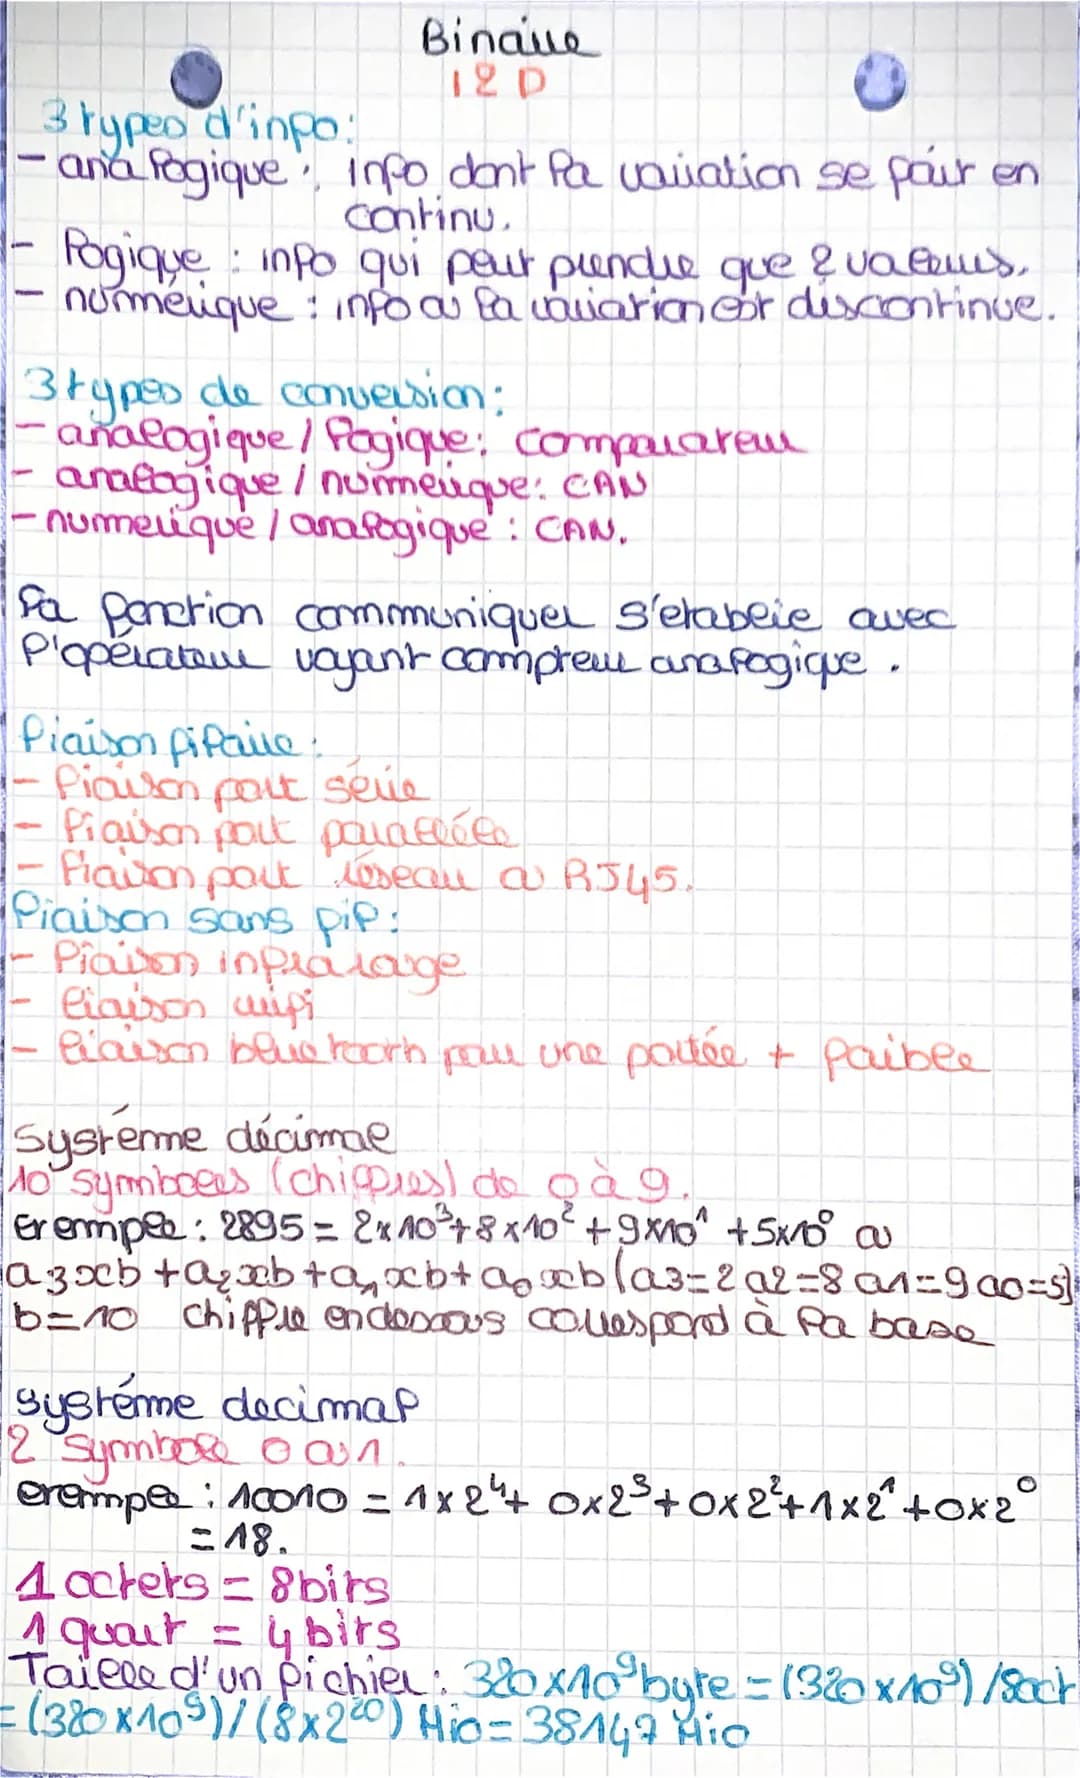 Binaire
I2D
3 types d'info:
- analogique : info dont la variation se fait en
continu.
- logique : info qui peut prendre que 2 valeurs.
- numérique : info où la variation est discontinue.
3 types de conversion:
- analogique / logique: comparateur
- analogique / numerique: CAN
- numerique / analogique : CAN.
la fonction communiquer s'etablie avec
l'opérateur voyant compteur analogique.
liaison filaire :
- liaison port série
- liaison port parallèle
- liaison port réseau ou RJ45.
liaison sans fil:
- liaison infrarouge
- liaison wifi
- liaison bluetooth pour une portée + faible
Systéme décimal
10 symboles (chiffres) de 0 à 9.
Exemple : 2895 = 2x10³+8x10² +9x10¹ +5x10⁰ ou
a3xb +a2xb+a1xb+a0xb (a3=2 a2=8 a1=9 a0=5)
b=10 chiffre endessous correspond à la base
systéme decimal
2 symbole 0 ou 1.
exemple : 10010 = 1x2⁴+ 0x2³+0x2²+1x2¹+0x2⁰
= 18.
1 octets = 8bits
1 quart = 4 bits
Taille d'un fichier : 320x10⁹byte = (320x10⁹)/8oct
= (320x10⁹)/(8x2²⁰) Mio= 38147 Mio